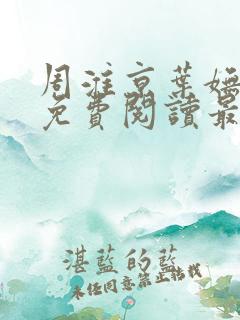 周淮京葉嫵
免費閱讀最
湛藍的藍
未任同意禁止轉載